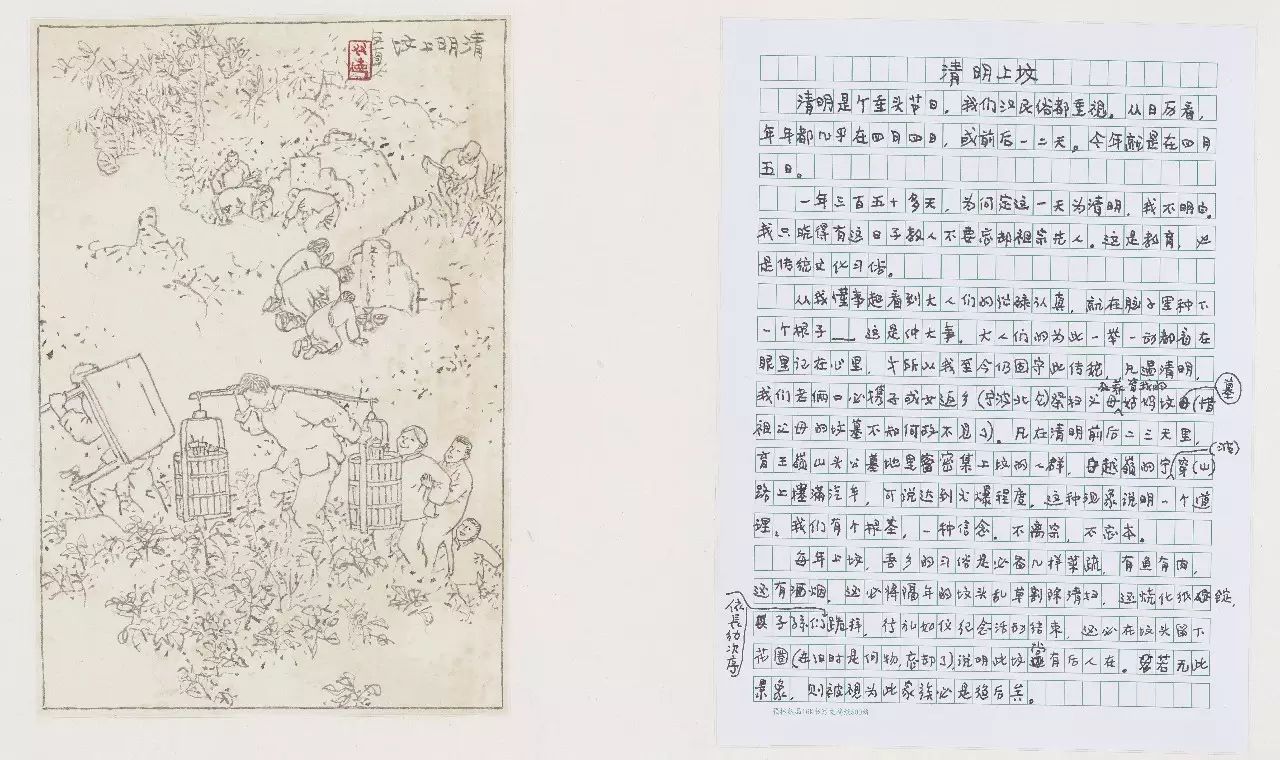 清明上坟
清明上坟
清明是个重头节日，我们汉民俗都重视。从日历看，
年年都几乎在四月四日，或前后一二天。今年就是在四月
五日。
一年三百五十多天，为何定这一天为清明，我不明白。
我只晓得有这日子教人不要忘却祖宗先人。这是教育，也
是传统文化习俗。
从我懂事起看到大人们的忙碌认真，就在脑子里种下
一个根子——这是件大事。大人们的为此一举一动都看在
眼里记在心里，才所以我至今仍固守此传统，凡遇清明，
我们老俩口必携子或女返乡（宁波北仑）祭扫父母
坟墓（惜
祖父母的坟墓不知何故不见了）。凡在清明前后二三天里，
育王岭山头公墓地里密密集上坟的人群，越岭的穿（山）
路上壅满汽车，可说达到火爆程度，这种现象说明一个道
理。我们有个根基，一种信念。不离宗，不忘本。
每年上坟，吾乡的习俗是必备几样菜蔬，有鱼有肉，
还有酒烟，还必将隔年的坟头乱草割除清扫，还烧化纸
依长幼次序
跪拜，行礼如仪纪念活动结束，还必在坟头留下
花圈（在旧时是何物，忘却了）说明此坟还有后人在。若无此
景象，则被视为此家族必是绝后矣。